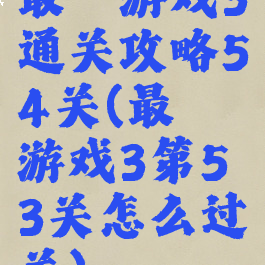 最 游戏3
通关攻略5
4关(最
游戏3第5
3关怎么过
关)